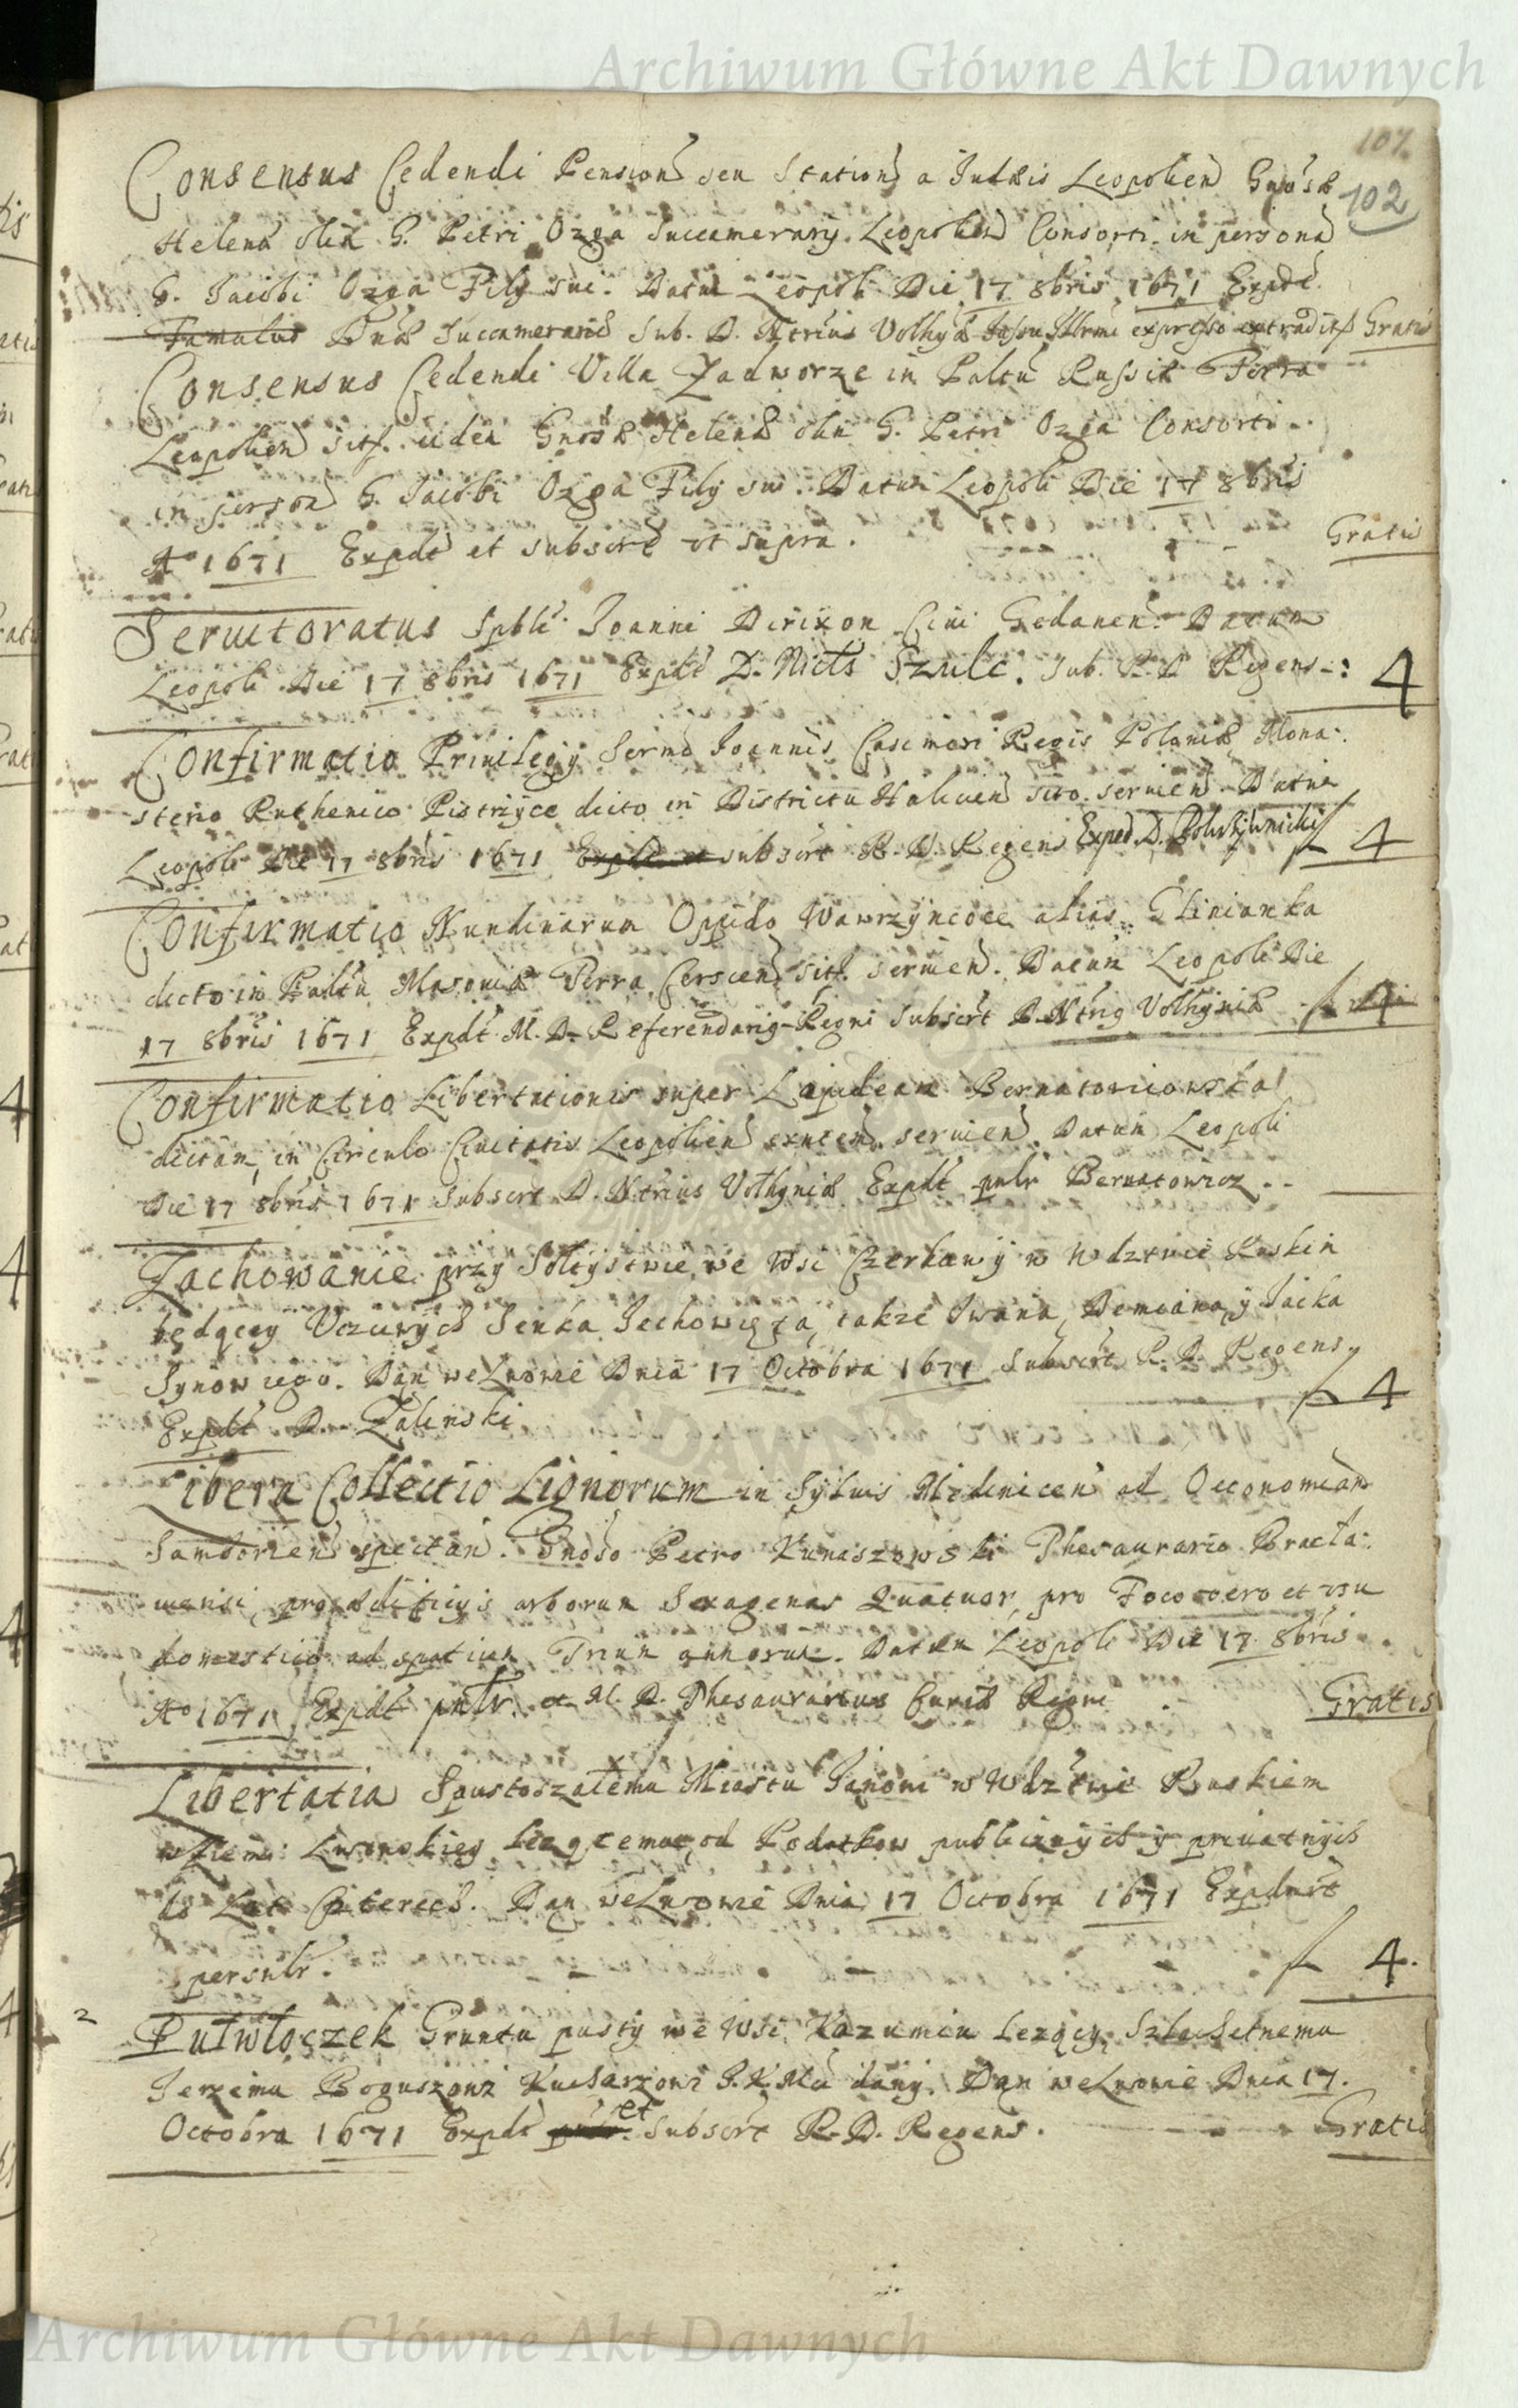 Archiwum Główne Akt Dawnych
107.
102
Consensus Cedendi Pension seu Station a Judeis Leopolien Gnosae
Helena olim G. Petri Ozga Succamerarij Leopolien Consorti in persona
G. Jacobi Ozga Filij sui. Datum Leopoli Die 17 8bris 1671 Expdt
Famulus Dnae Succamerariae Sub. D. Ntrius Volhyniae expresso extradit Gratis
Consensus Cedendi Villa Zadworze in Paltu Russiae Terra
Leopolien sit. eidem Gnosae Helena olim G. Petri Ozga Consorti
in person G. Jacobi Ozga Filij sui. Datum Leopoli Die 17 8bris
Ao 1671 Expdt et subscrt ut supra. Gratis
Seruitoratus Spbli Joanni Dirixon Ciui Gedanen. Datum
Leopoli Die 17 8bris 1671 Expdt D. Niels Szulc. Sub. R. D Regens -: 4
Confirmatio Priuilegij Sermi Joannis Casimiri Regis Poloniae Mona-
sterio Ruthenico Pistrzyce dicto in Districtu Halicien sito seruien. Datum
Leopoli Die 17 8bris 1671 Expdt et subscrt R. D. Regens Exped. D. 4
Confirmatio Nundinarum Oppido Wawrzyncoce alias Glinianka
dicto in Paltu Masouiae Terra Cerscen sit. seruien. Datum Leopoli Die
17 8bris 1671 Expdt M. D. Referendarig Regni Subscrt D. Ntrig Volhyniae 4
Confirmatio Libertationis super Lapideam Bernatowiczowska
dictam, in Circulo Ciuitatis Leopolien seruien. Datum Leopoli
Die 17 8bris 1671 Subscrt D. Ntrius Volhyniae Expdt pnlr Bernatowicz
Zachowanie przy Soltystwie we Wsi Czerkawy w Wdztwie Ruskim
będącey Vczciwych Senka Sechowicza, także Iwana, Demiana y Jacka
Synow iego. Dan we Lwowie Dnia 17 Octobra 1671 Subscrt R. D. Regens.
Expdt D. Zalinski 4
Libera Collectio Lignorum in Syluis Medenicen ad Oeconomiam
Samborien spectan. Gnoso Petro Kunaszowski Thesaurario Bracla-
uiensi, pro aedificijs arborum Sexagenas Quatuor, pro Foco vero et vsu
domestico ad spatium Trium annorum. Datum Leopoli Die 17 8bris
Ao 1671 Expdt pnlr. et M. D. Thesaurarius Curiae Regni Gratis
Libertatia Spustoszałemu Miastu Janowi w Wdztwie Ruskiem
w Ziemi Lwowskiey leżącemu, od Podatkow publicznych y priuatnych
do Lat Czterech. Dan we Lwowie Dnia 17 Octobra 1671 Expdnt
persnlr. 4.
2
Pułwłoczek Gruntu pusty we Wsi Kazumiu leżący, Szlachetnemu
Jerzemu Boguszowi Kucharzowi J. K. Mci dany. Dan we Lwowie Dnia 17.
Octobra 1671 Expdt et Subscrt R. D. Regens. Gratis
Archiwum Główne Akt Dawnych